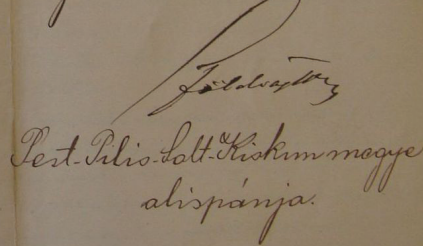 Földváry
Pest-Pilis-Solt-Kiskun megye
alispánja.